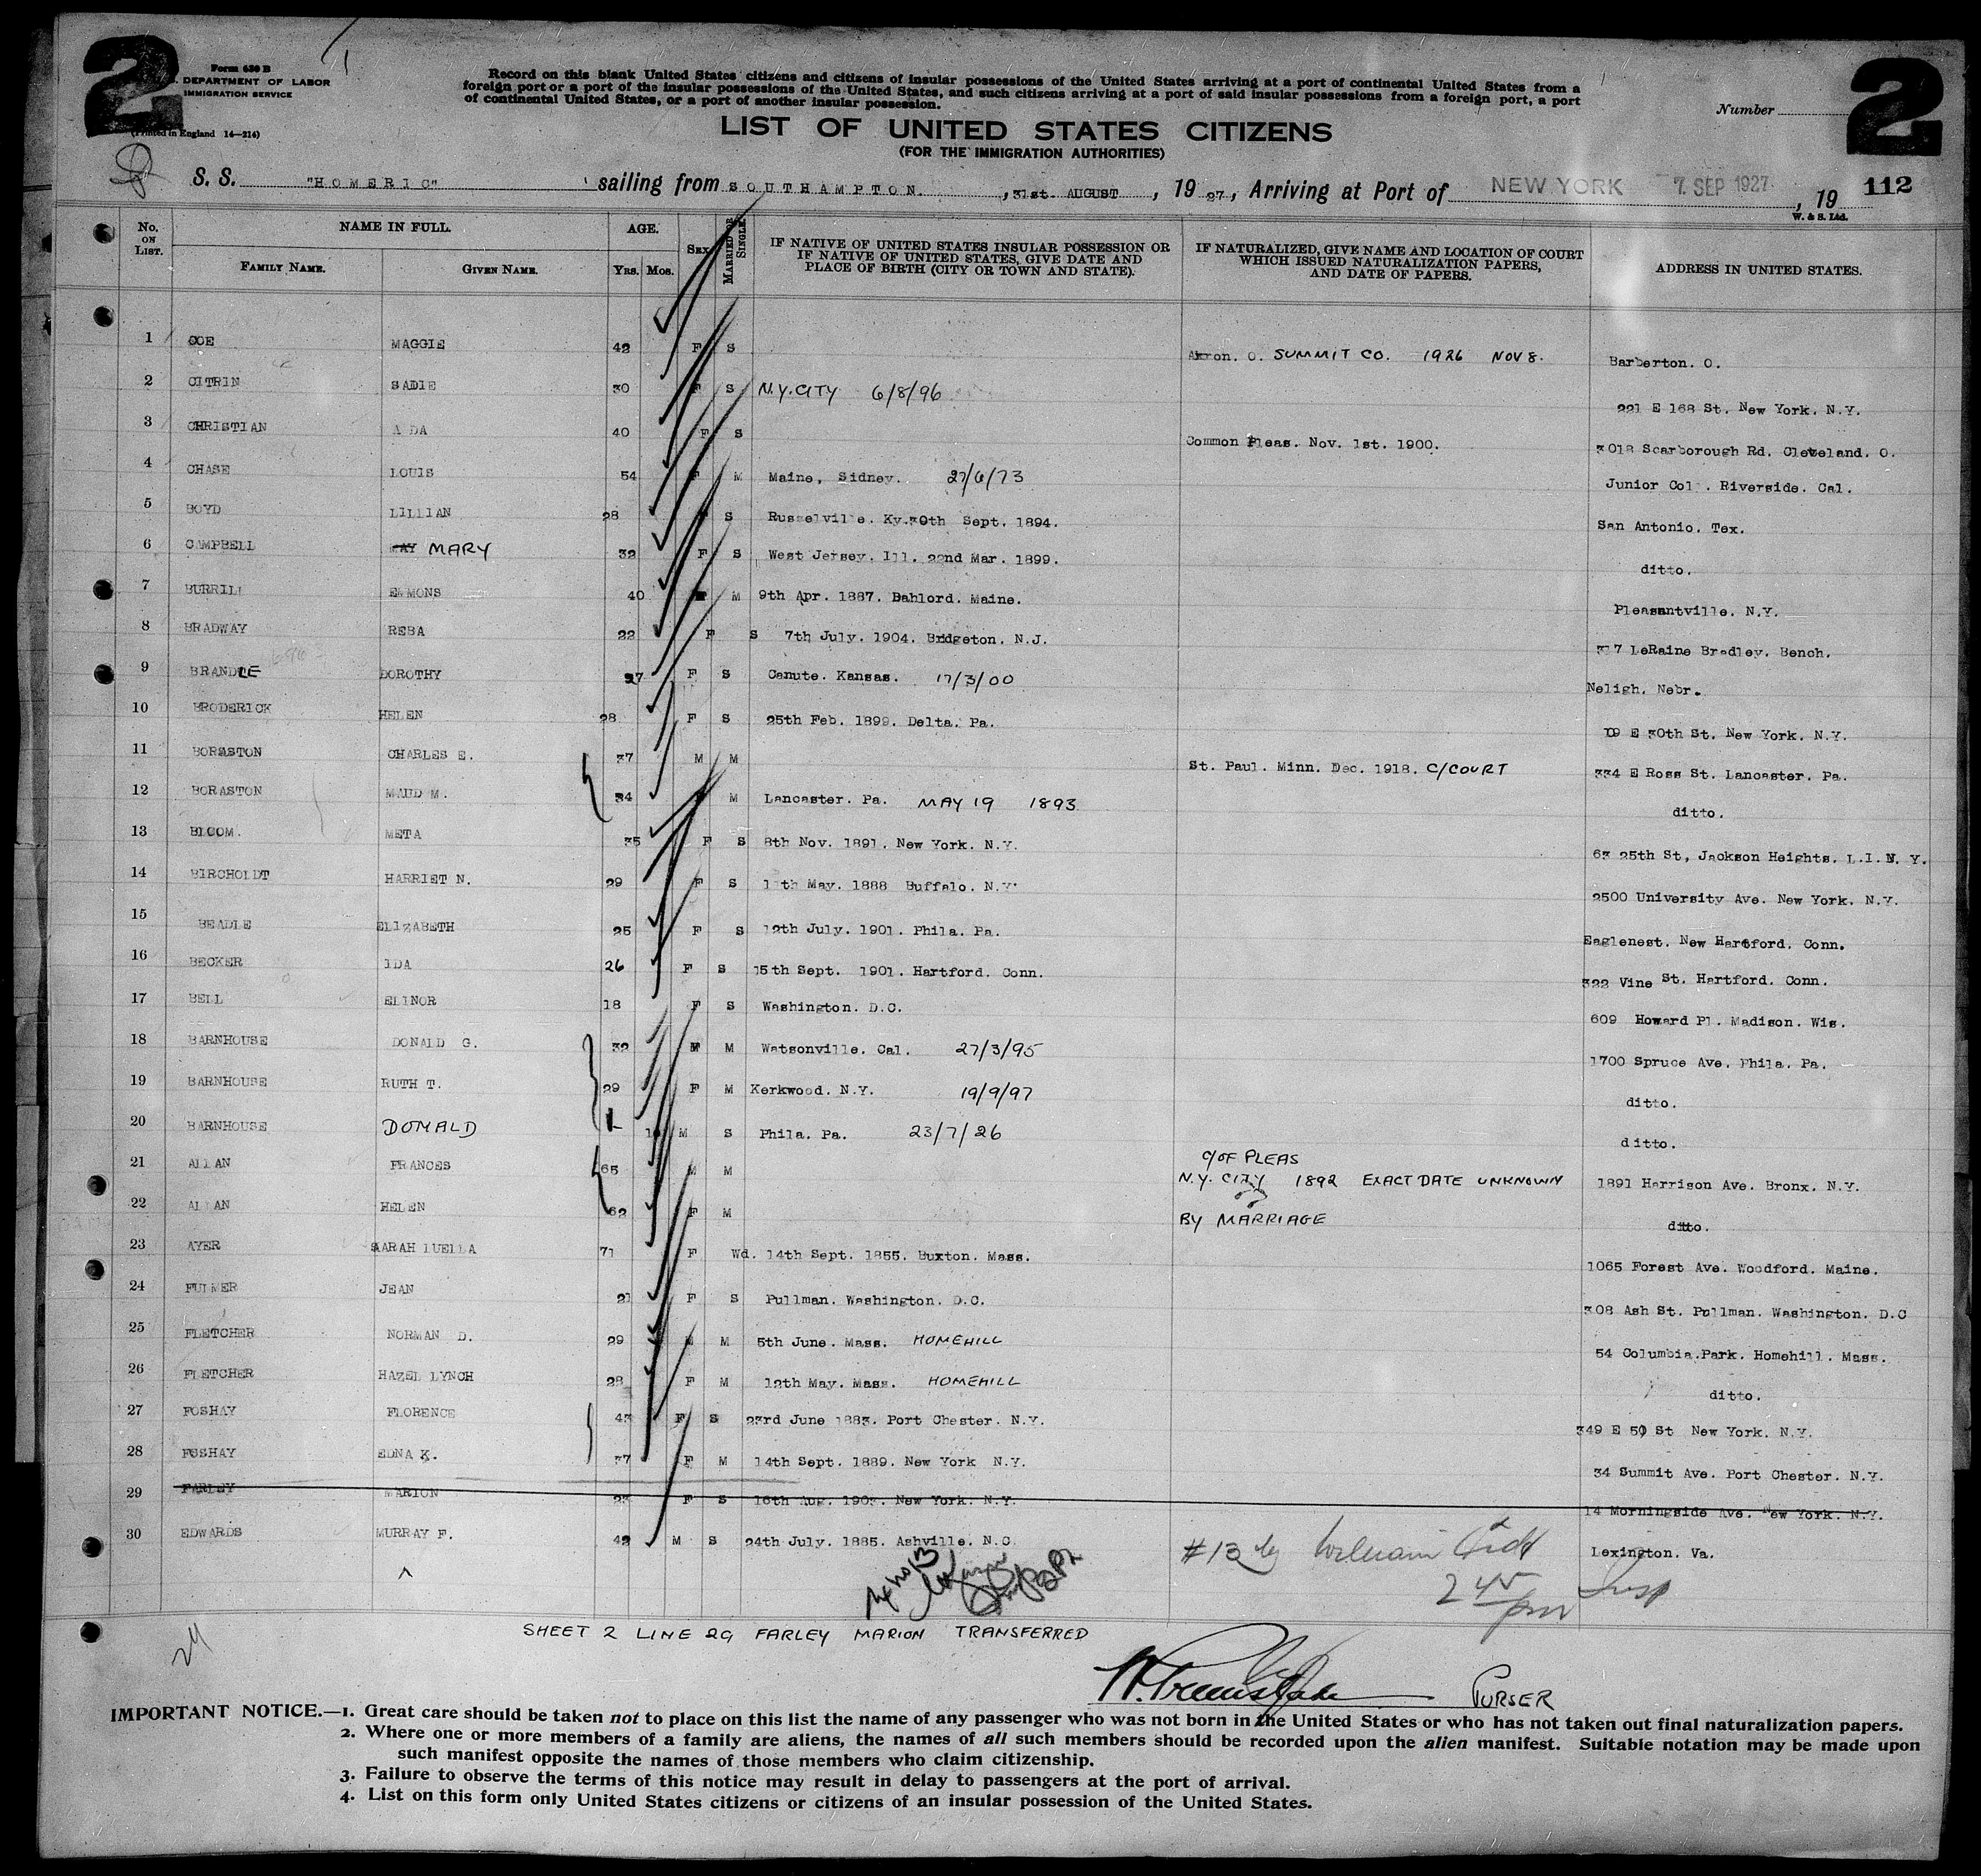 2
2
Form 630 B
DEPARTMENT OF LABOR
IMMIGRATION SERVICE
(Printed in England 14—214)
Record on this blank United States citizens and citizens of insular possessions of the United States arriving at a port of continental United States from a
foreign port or a port of the insular possessions of the United States, and such citizens arriving at a port of said insular possessions from a foreign port, a port
of continental United States, or a port of another insular possession.
Number
LIST OF UNITED STATES CITIZENS
(FOR THE IMMIGRATION AUTHORITIES)
S. S. "HOMERIC" sailing from SOUTHAMPTON. , 31st. AUGUST , 19 27, Arriving at Port of NEW YORK 7 SEP 1927 , 19 112
W. & S. Ltd.
No. ON LIST. NAME IN FULL. FAMILY NAME. GIVEN NAME. AGE. Yrs. Mos. SEX MARRIED OR SINGLE. IF NATIVE OF UNITED STATES INSULAR POSSESSION OR IF NATIVE OF UNITED STATES, GIVE DATE AND PLACE OF BIRTH (CITY OR TOWN AND STATE). IF NATURALIZED, GIVE NAME AND LOCATION OF COURT WHICH ISSUED NATURALIZATION PAPERS, AND DATE OF PAPERS. ADDRESS IN UNITED STATES.
1 COE MAGGIE 42 F S Akron. O. SUMMIT CO. 1926 NOV 8. Barberton. O.
2 CITRIN SADIE 30 F S N.Y. CITY 6/8/96 221 E 168 St. New York. N.Y.
3 CHRISTIAN A DA 40 F S Common Pleas. Nov. 1st. 1900. 3018 Scarborough Rd. Cleveland. O.
4 CHASE LOUIS 54 M Maine, Sidney. 27/6/73 Junior Col. Riverside. Cal.
5 BOYD LILLIAN 28 S Russelville. Ky. 30th Sept. 1894. San Antonio. Tex.
6 CAMPBELL MAY MARY 32 F S West Jersey. Ill. 22nd Mar. 1899. ditto.
7 BURRILL EMMONS 40 M 9th Apr. 1887. Bahlord. Maine. Pleasantville. N.Y.
8 BRADWAY REBA 22 F S 7th July. 1904. Bridgeton. N.J. 317 LeRaine Bradley. Bench.
9 BRANDLE DOROTHY 27 F S Canute. Kansas. 17/3/00 Neligh. Nebr.
10 BRODERICK HELEN 28 F S 25th Feb. 1899. Delta. Pa. 19 E 30th St. New York. N.Y.
11 BORASTON CHARLES E. 37 M M St. Paul. Minn. Dec. 1918. C/COURT 334 E Ross St. Lancaster. Pa.
12 BORASTON MAUD M. 34 M Lancaster. Pa. MAY 19 1893 ditto.
13 BLOOM. META 35 F S 8th Nov. 1891. New York. N.Y. 63 25th St, Jackson Heights. L.I.N.Y.
14 BIRCHOLDT HARRIET N. 29 F S May. 1888 Buffalo. N.Y. 2500 University Ave. New York. N.Y.
15 BEADLE ELIZABETH 25 F S 12th July. 1901. Phila. Pa. Eaglenest. New Hartford. Conn.
16 BECKER IDA 26 F S 15th Sept. 1901. Hartford. Conn. 322 Vine St. Hartford. Conn.
17 BELL ELINOR 18 F S Washington. D.C. 609 Howard Pl. Madison. Wis.
18 BARNHOUSE DONALD G. 32 M M Watsonville. Cal. 27/3/95 1700 Spruce Ave. Phila. Pa.
19 BARNHOUSE RUTH T. 29 F M Kerkwood. N.Y. 19/9/97 ditto.
20 BARNHOUSE DONALD 1 M S Phila. Pa. 23/7/26 ditto.
21 ALLAN FRANCES 65 M M C/OF PLEAS N.Y. CITY 1892 EXACT DATE UNKNOWN 1891 Harrison Ave. Bronx. N.Y.
22 ALLAN HELEN 62 F M BY MARRIAGE ditto.
23 AYER SARAH LUELLA 71 F Wd. 14th Sept. 1855. Buxton. Mass. 1065 Forest Ave. Woodford. Maine.
24 FULMER JEAN 21 F S Pullman. Washington. D.C. 308 Ash St. Pullman. Washington. D.C
25 FLETCHER NORMAN D. 29 M 5th June. Mass. HOMEHILL 54 Columbia.Park. Homehill. Mass.
26 FLETCHER HAZEL LYNCH 28 F M 12th May. Mass. HOMEHILL ditto.
27 FOSHAY FLORENCE 43 F S 23rd June 1883. Port Chester. N.Y. 349 E 50 St New York. N.Y.
28 FOSHAY EDNA K. 37 F M 14th Sept. 1889. New York N.Y. 34 Summit Ave. Port Chester. N.Y.
29 FARLEY MARION 23 F S 16th Aug. 1903. New York. N.Y. 14 Morningside Ave. New York. N.Y.
30 EDWARDS MURRAY F. 42 M S 24th July. 1885. Ashville. N.C. Lexington. Va.
#13 by William
2 45 pm Insp
SHEET 2 LINE 29 FARLEY MARION TRANSFERRED
PURSER
IMPORTANT NOTICE.—1. Great care should be taken not to place on this list the name of any passenger who was not born in the United States or who has not taken out final naturalization papers.
2. Where one or more members of a family are aliens, the names of all such members should be recorded upon the alien manifest. Suitable notation may be made upon
such manifest opposite the names of those members who claim citizenship.
3. Failure to observe the terms of this notice may result in delay to passengers at the port of arrival.
4. List on this form only United States citizens or citizens of an insular possession of the United States.